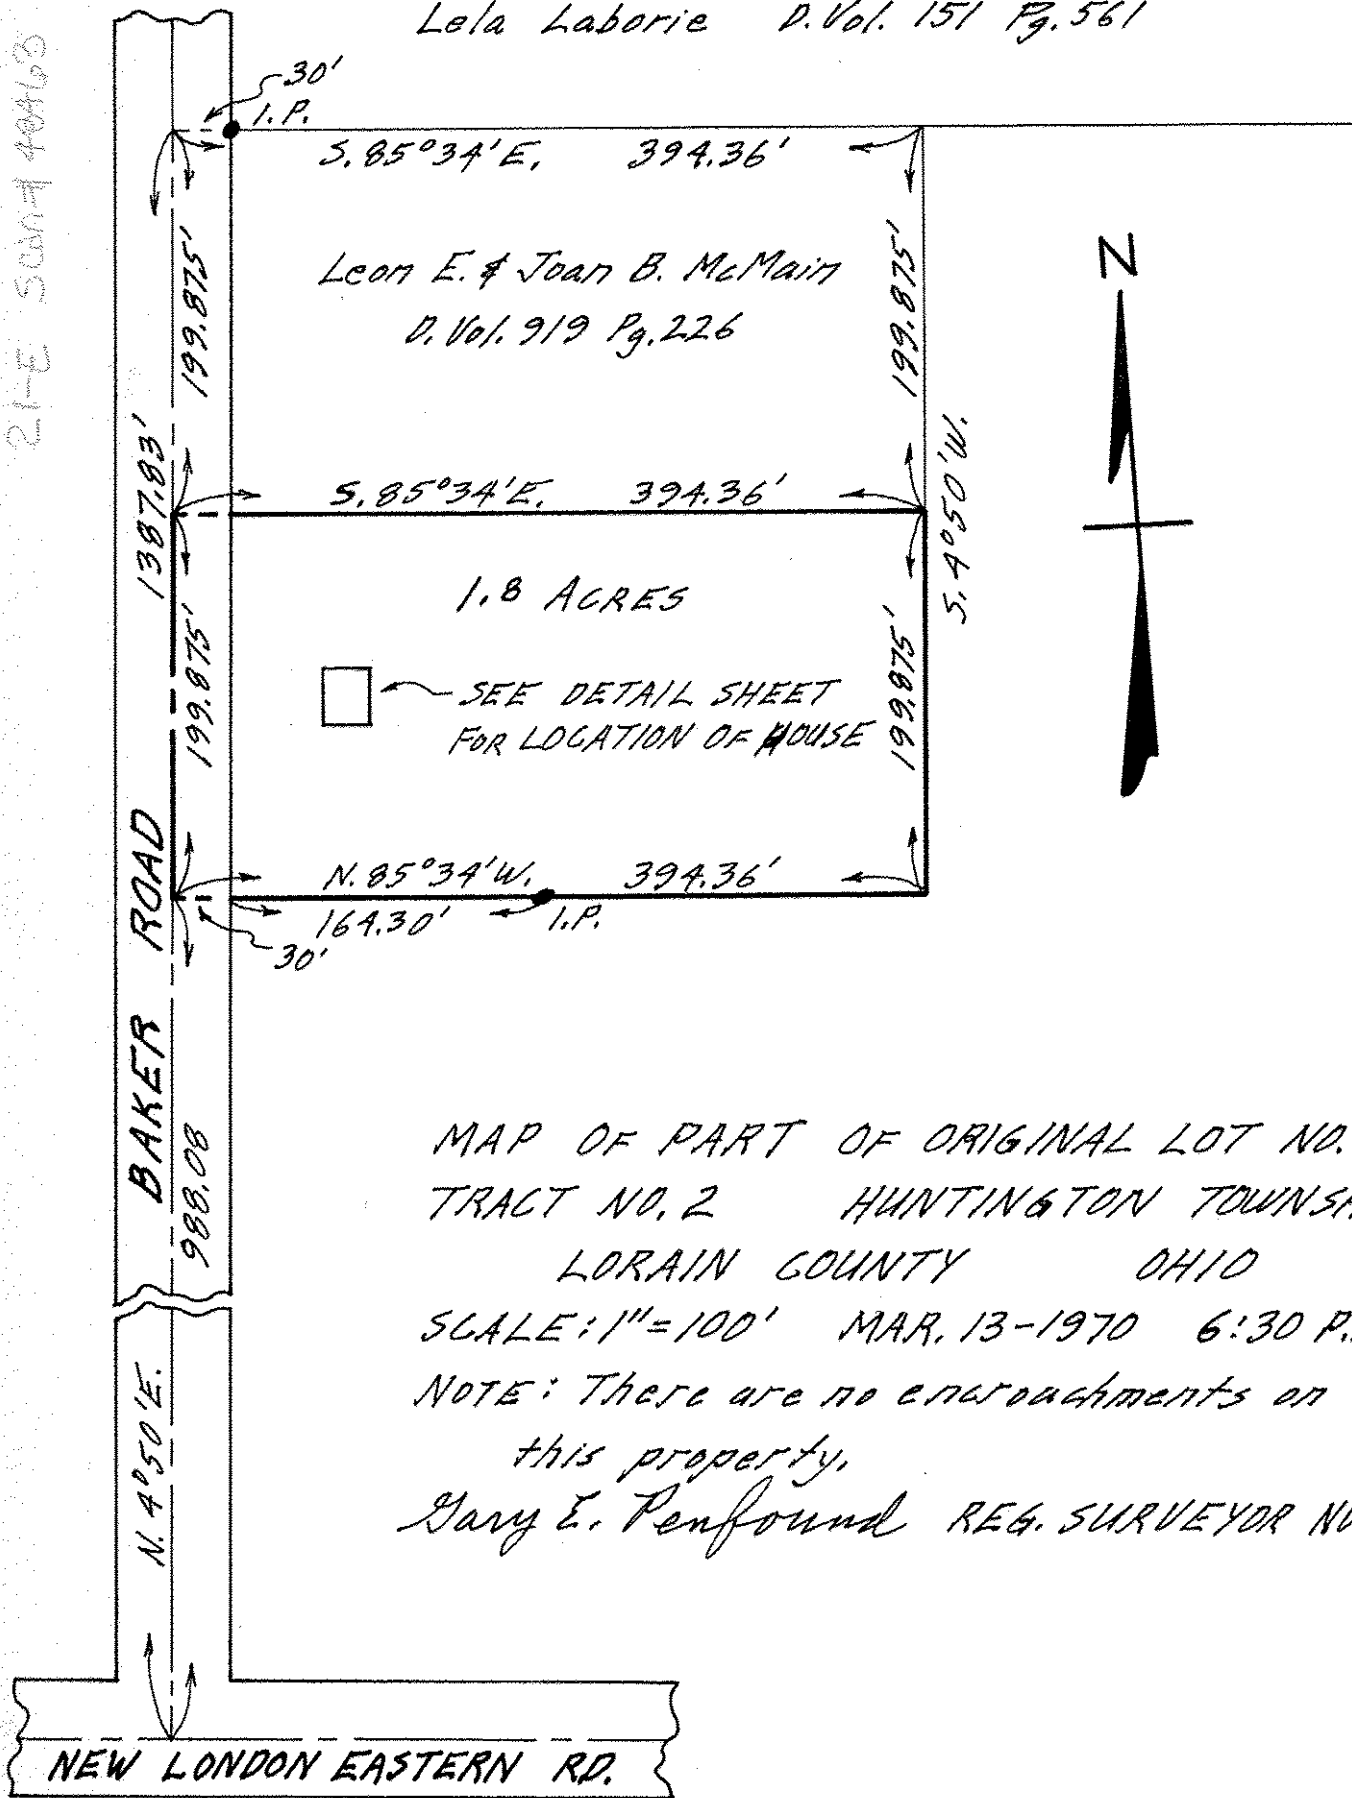 Lela Laborie D. Vol. 151 Pg. 561
30'
I.P.
S. 85°34'E. 394.36'
199.875'
Leon E. & Joan B. McMain
D. Vol. 919 Pg. 226
199.875'
N
1387.83'
S. 85°34'E. 394.36'
S. 4°50'W.
1.8 ACRES
199.875'
SEE DETAIL SHEET
FOR LOCATION OF HOUSE
199.875'
N. 85°34'W. 394.36'
164.30' I.P.
30'
BAKER ROAD
988.08
MAP OF PART OF ORIGINAL LOT NO.
TRACT NO. 2 HUNTINGTON TOWNSH
LORAIN COUNTY OHIO
SCALE: 1"=100' MAR. 13-1970 6:30 P.
NOTE: There are no encroachments on
this property.
Gary E. Penfound REG. SURVEYOR NO
N. 4°50'E.
NEW LONDON EASTERN RD.
21-E Scan#